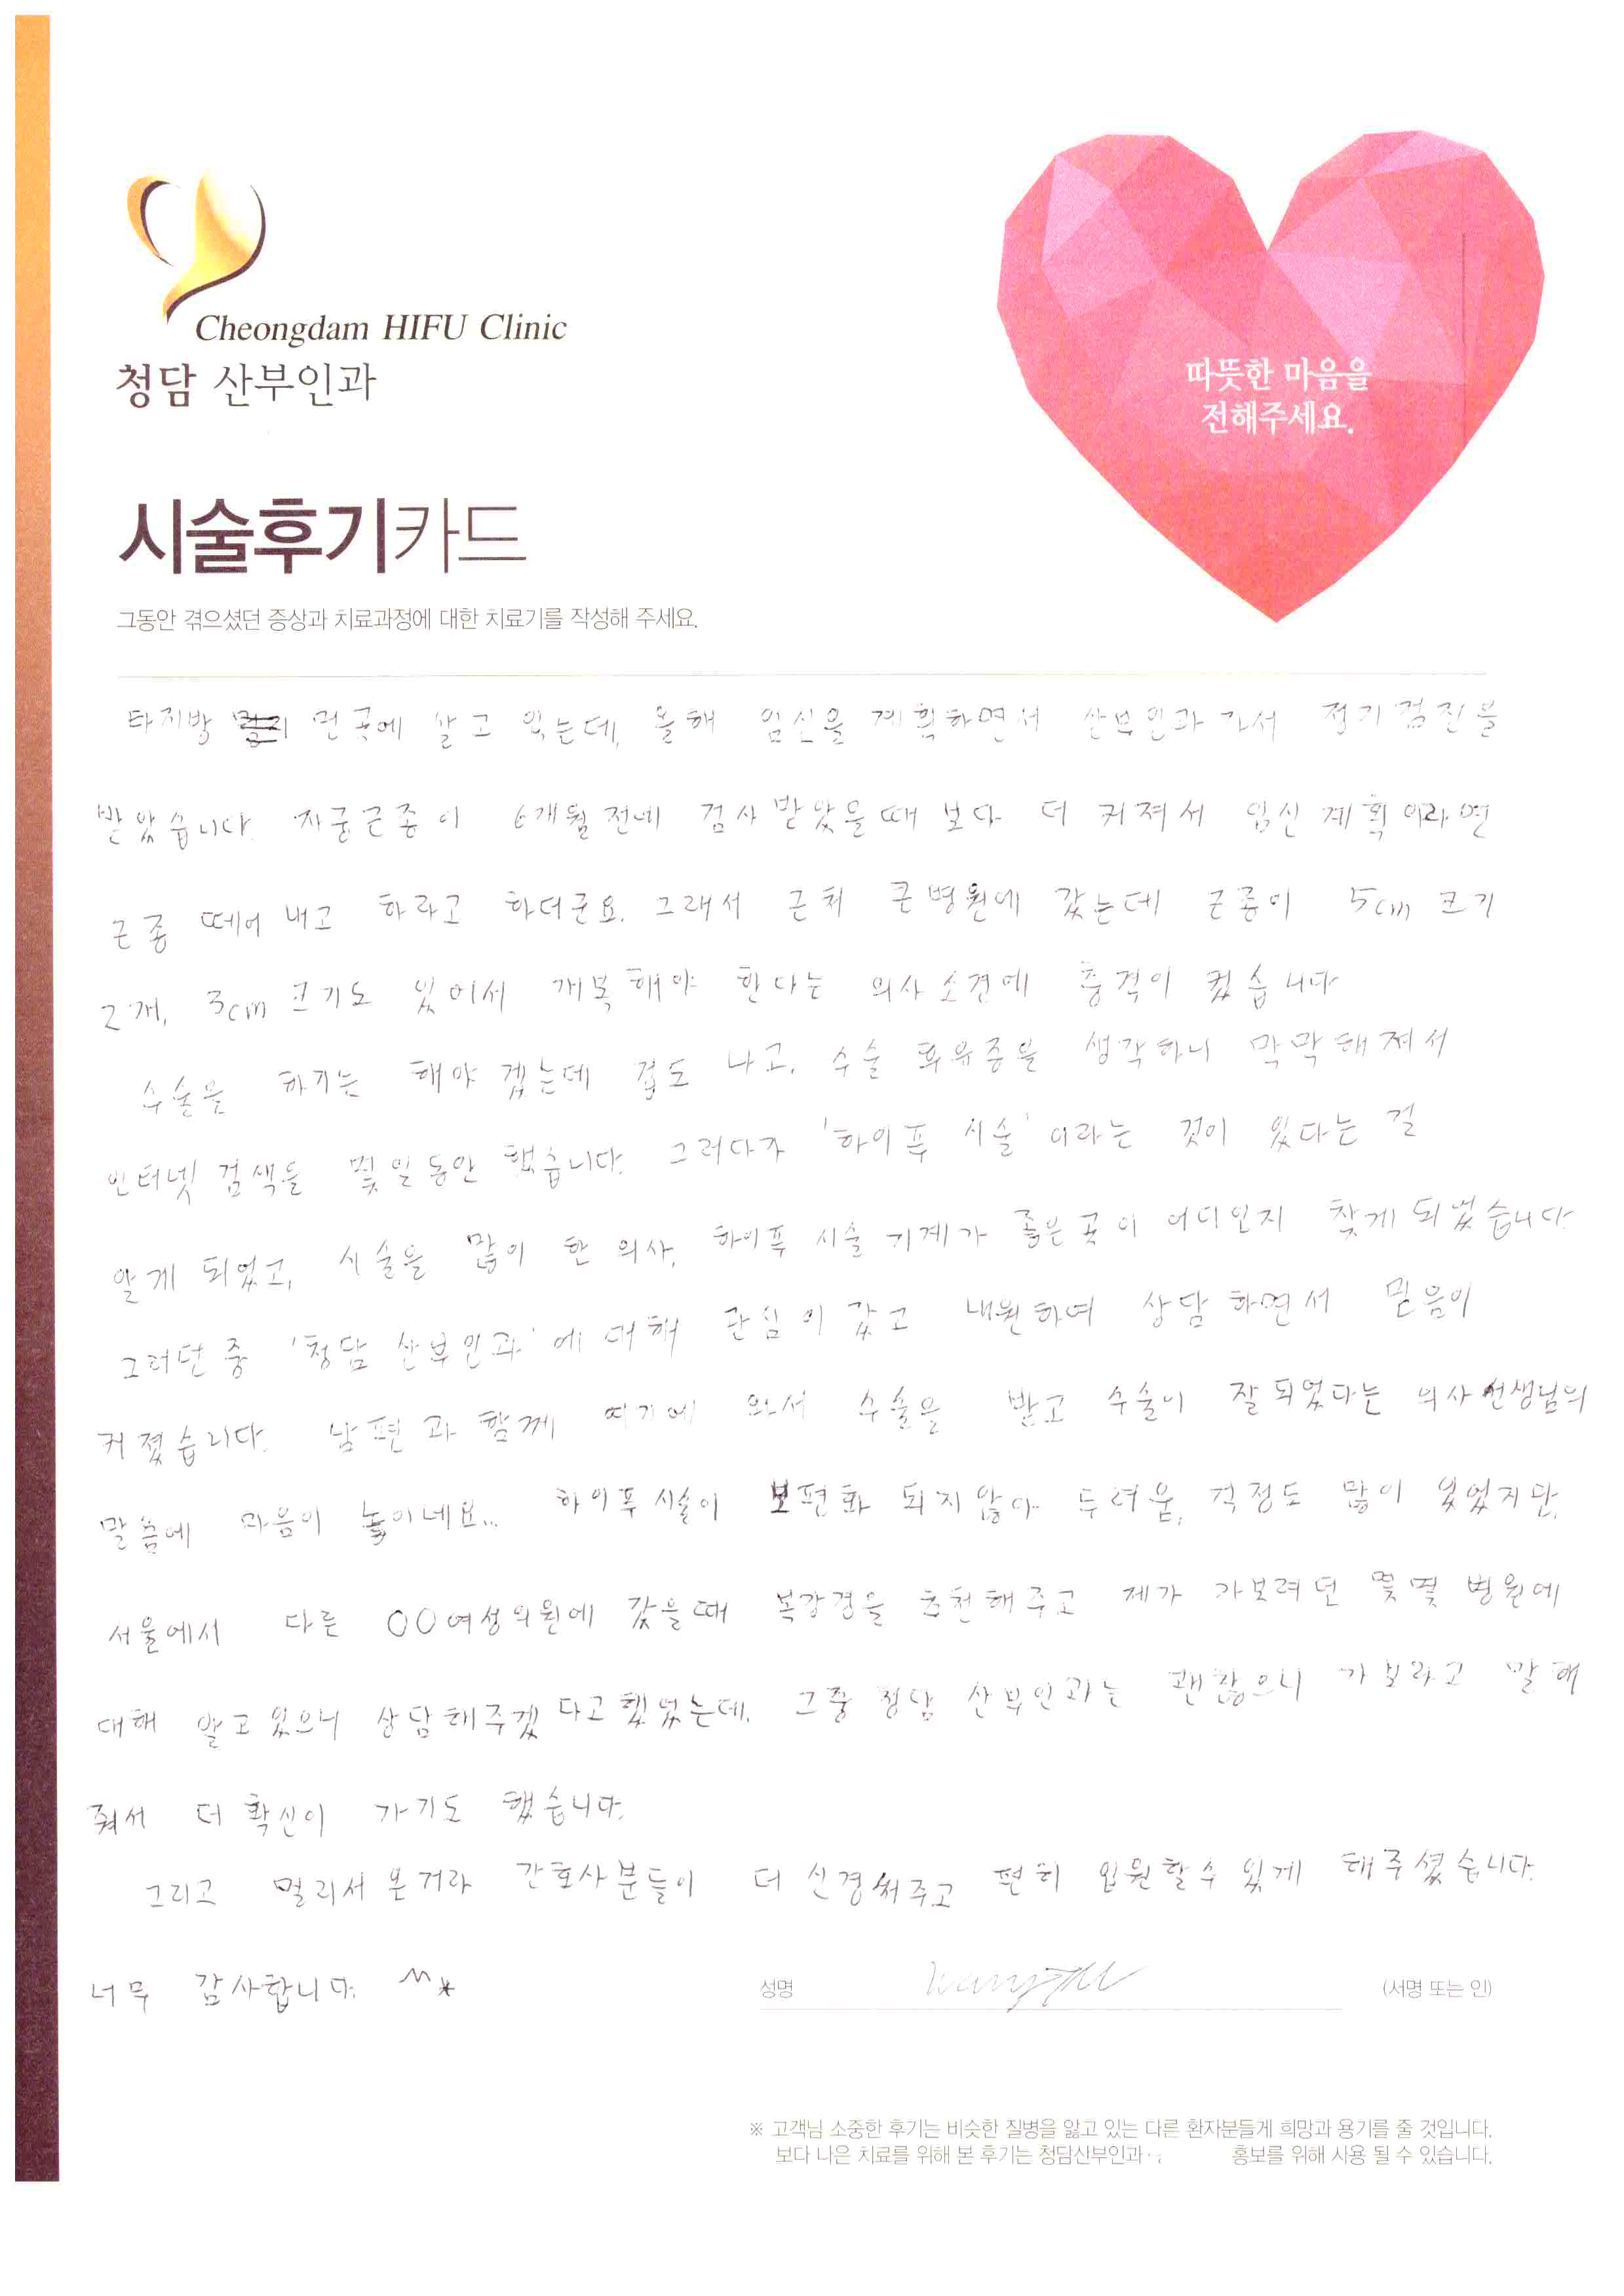 Cheongdam HIFU Clinic
청담 산부인과
따뜻한 마음을
전해주세요.
시술후기카드
그동안 겪으셨던 증상과 치료과정에 대한 치료기를 작성해 주세요.
타지방 먼 곳에 살고 있는데, 올해 임신을 계획하면서 산부인과 가서 정기검진을
받았습니다. 자궁근종이 6개월 전에 검사 받았을 때 보다 더 커져서 임신 계획이라면
근종 떼어 내고 하라고 하더군요. 그래서 근처 큰병원에 갔는데 근종이 5cm 크기
2개, 3cm 크기도 있어서 개복해야 한다는 의사소견에 충격이 컸습니다
수술을 하기는 해야겠는데 겁도 나고, 수술 휴유증을 생각하니 막막해져서
인터넷 검색을 몇일동안 했습니다. 그러다가 '하이푸 시술' 이라는 것이 있다는 걸
알게 되었고, 시술을 많이 한 의사, 하이푸 시술 기계가 좋은곳이 어디인지 찾게 되었습니다.
그러던 중 '청담 산부인과'에 대해 관심이 갔고 내원하여 상담하면서 믿음이
커졌습니다. 남편과 함께 여기에 와서 수술을 받고 수술이 잘되었다는 의사선생님의
말씀에 마음이 놓이네요... 하이푸 시술이 보편화 되지 않아 두려움, 걱정도 많이 있었지만,
서울에서 다른 OO여성의원에 갔을때 복강경을 추천해주고 제가 가보려던 몇몇 병원에
대해 알고 있으니 상담해주겠다고 했었는데, 그중 청담 산부인과는 괜찮으니 가보라고 말해
줘서 더 확신이 가기도 했습니다.
그리고 멀리서 온거라 간호사분들이 더 신경써주고 편히 입원할수 있게 해주셨습니다.
너무 감사합니다. ^^*
성명 (서명 또는 인)
※ 고객님 소중한 후기는 비슷한 질병을 앓고 있는 다른 환자분들게 희망과 용기를 줄 것입니다.
보다 나은 치료를 위해 본 후기는 청담산부인과 홍보를 위해 사용 될 수 있습니다.